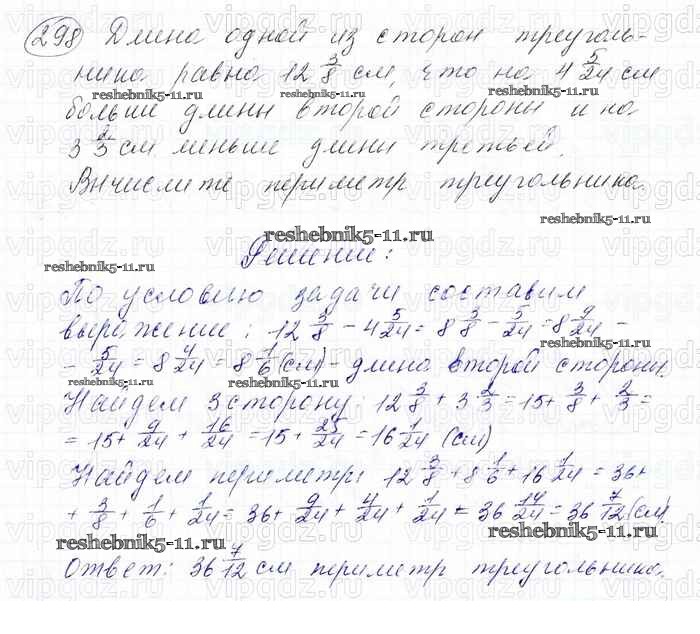 298 Длина одной из сторон треуголь-
ника равна 12 3/8 см, что на 4 5/24 см
reshebnik5-11.ru reshebnik5-11.ru reshebnik5-11.ru
больше длины второй стороны и на
3 2/3 см меньше длины третьей.
Вычислите периметр треугольника.
reshebnik5-11.ru
reshebnik5-11.ru
Решение:
reshebnik5-11.ru
По условию задачи составим
выражение: 12 3/8 - 4 5/24 = 8 3/8 - 5/24 = 8 9/24 -
reshebnik5-11.ru
- 5/24 = 8 4/24 = 8 1/6 (см) - длина второй стороны.
reshebnik5-11.ru reshebnik5-11.ru
Найдем 3 сторону: 12 3/8 + 3 2/3 = 15 + 3/8 + 2/3 =
= 15 + 9/24 + 16/24 = 15 + 25/24 = 16 1/24 (см)
Найдем периметр: 12 3/8 + 8 1/6 + 16 1/24 = 36 +
+ 3/8 + 1/6 + 1/24 = 36 + 9/24 + 4/24 + 1/24 = 36 14/24 = 36 7/12 (см)
reshebnik5-11.ru reshebnik5-11.ru
Ответ: 36 7/12 см периметр треугольника.